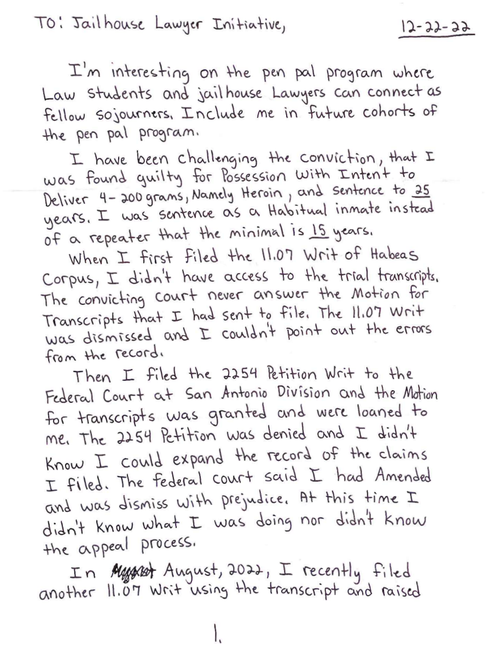 TO: Jailhouse Lawyer Initiative,
12-22-22
I'm interesting on the pen pal program where
Law students and jailhouse Lawyers can connect as
fellow sojourners. Include me in future cohorts of
the pen pal program.
I have been challenging the conviction, that I
was found guilty for Possession With Intent to
Deliver 4-200 grams, Namely Heroin, and sentence to 25
years. I was sentence as a Habitual inmate instead
of a repeater that the minimal is 15 years.
When I first filed the 11.07 Writ of Habeas
Corpus, I didn't have access to the trial transcripts.
The convicting court never answer the Motion for
Transcripts that I had sent to file. The 11.07 Writ
was dismissed and I couldn't point out the errors
from the record.
Then I filed the 2254 Petition Writ to the
Federal Court at San Antonio Division and the Motion
for transcripts was granted and were loaned to
me. The 2254 Petition was denied and I didn't
Know I could expand the record of the claims
I filed. The federal court said I had Amended
and was dismiss with prejudice. At this time I
didn't know what I was doing nor didn't know
the appeal process.
In August, 2022, I recently filed
another 11.07 Writ using the transcript and raised
1.